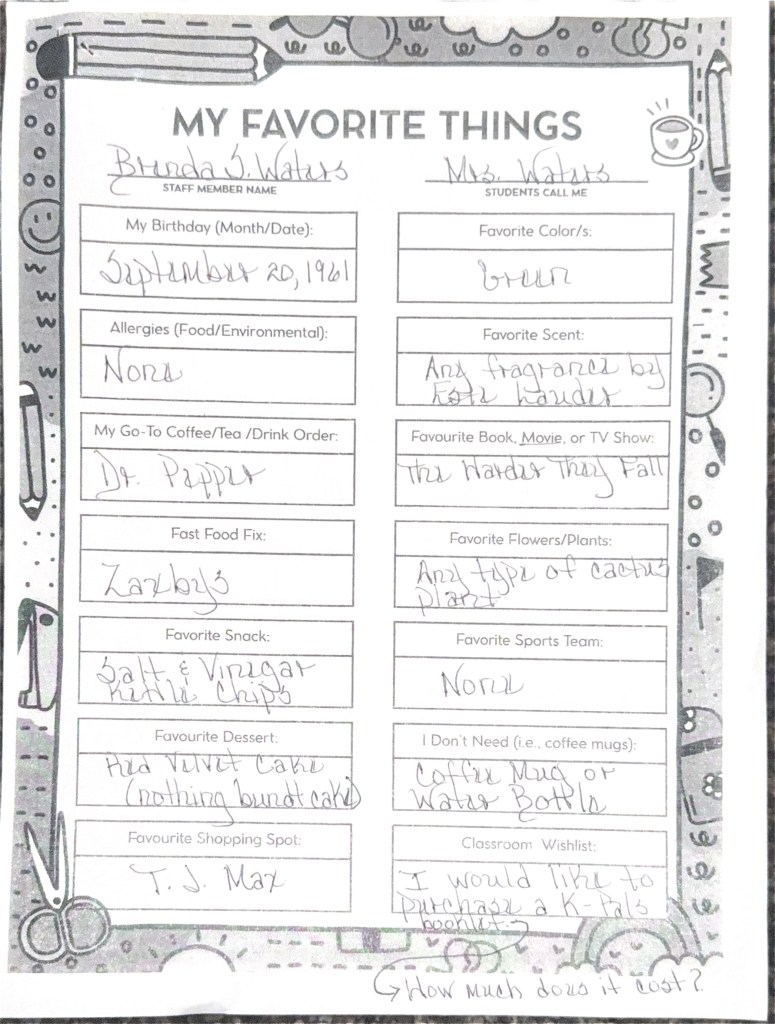 MY FAVORITE THINGS
Brenda S. Waters
STAFF MEMBER NAME
Mrs. Waters
STUDENTS CALL ME
My Birthday (Month/Date):
September 20, 1961
Allergies (Food/Environmental):
None
My Go-To Coffee/Tea /Drink Order:
Dr. Pepper
Fast Food Fix:
Zaxbys
Favorite Snack:
Salt & Vinegar
Kettle Chips
Favourite Dessert:
Red Velvet Cake
(nothing bundt cake)
Favourite Shopping Spot:
T. J. Max
Favorite Color/s:
Green
Favorite Scent:
Any fragrance by
Este Lauder
Favourite Book, Movie, or TV Show:
The Harder They Fall
Favorite Flowers/Plants:
Any type of cactus
plant
Favorite Sports Team:
None
I Don't Need (i.e., coffee mugs):
Coffee Mug or
Water Bottle
Classroom Wishlist:
I would like to
purchase a K-Pals
booklet.
How much does it cost?